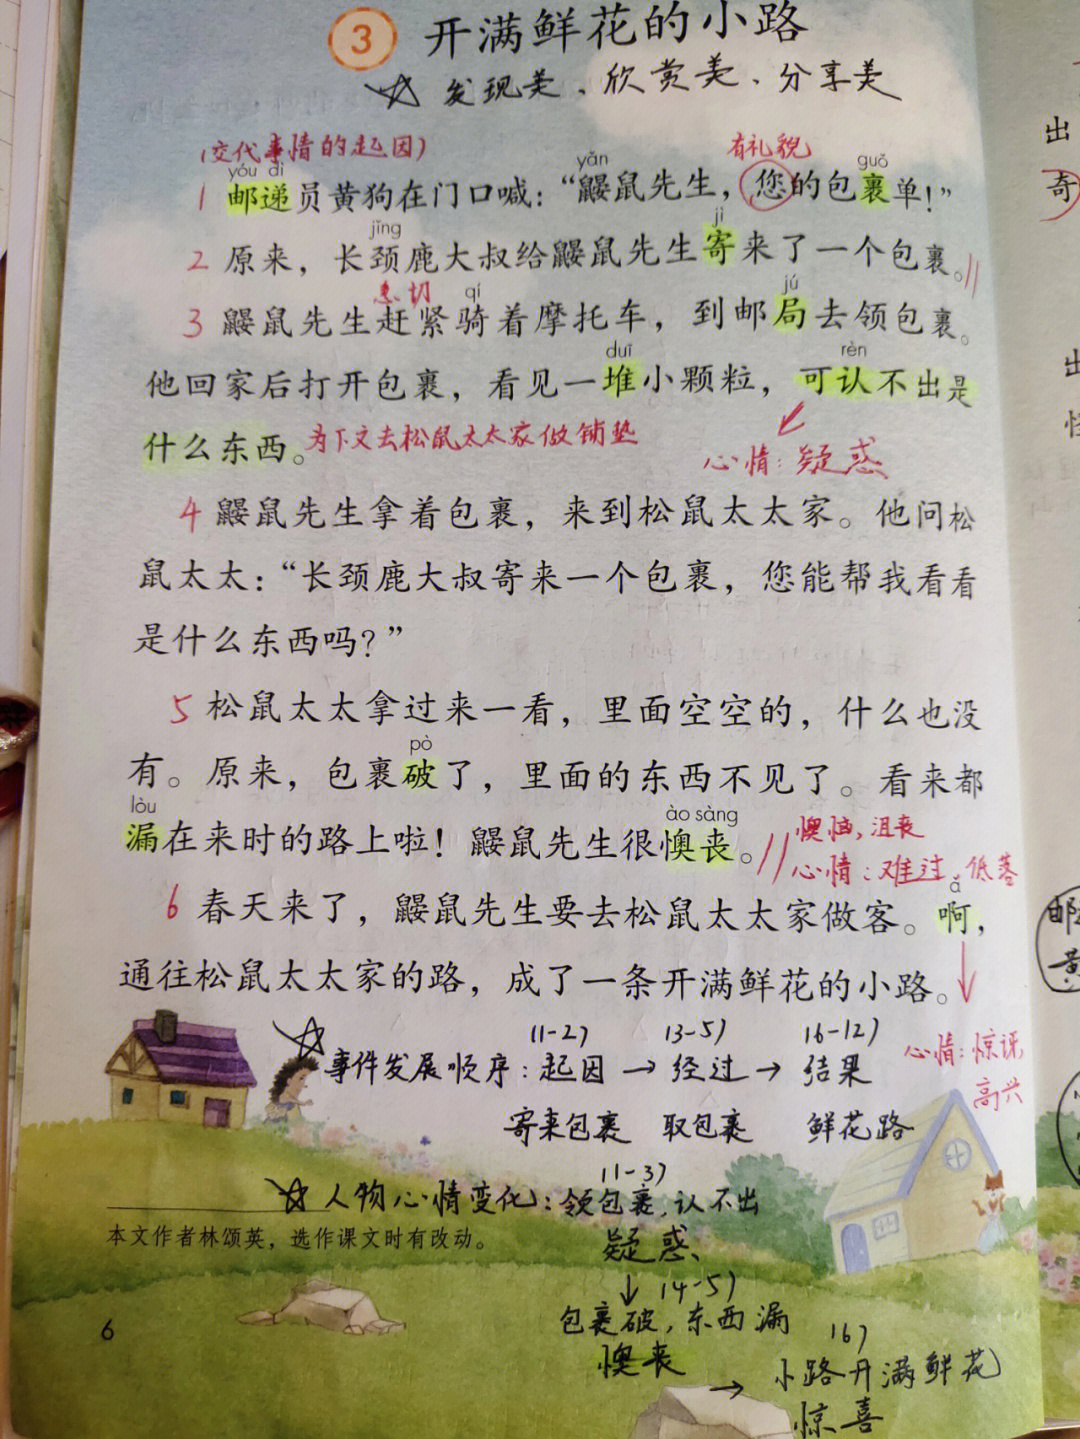 3 开满鲜花的小路
发现美、欣赏美、分享美
(交代事情的起因)
有礼貌
yóu dì yǎn guǒ
1 邮递员黄狗在门口喊：“鼹鼠先生，您的包裹单！”
jǐng jì
2 原来，长颈鹿大叔给鼹鼠先生寄来了一个包裹。//
急切 qí jú
3 鼹鼠先生赶紧骑着摩托车，到邮局去领包裹。
duī rèn
他回家后打开包裹，看见一堆小颗粒，可认不出是
什么东西。为下文去松鼠太太家做铺垫
心情：疑惑
4 鼹鼠先生拿着包裹，来到松鼠太太家。他问松
鼠太太：“长颈鹿大叔寄来一个包裹，您能帮我看看
是什么东西吗？”
5 松鼠太太拿过来一看，里面空空的，什么也没
pò
有。原来，包裹破了，里面的东西不见了。看来都
lòu ào sàng
漏在来时的路上啦！鼹鼠先生很懊丧。//
懊恼，沮丧
心情：难过、低落
ā
6 春天来了，鼹鼠先生要去松鼠太太家做客。啊，
通往松鼠太太家的路，成了一条开满鲜花的小路。
心情：惊讶，
高兴
(1-2) (3-5) (6-12)
事件发展顺序：起因→经过→结果
寄来包裹 取包裹 鲜花路
(1-3)
人物心情变化：领包裹，认不出
疑惑
↓(4-5)
包裹破，东西漏
懊丧
(6)
→小路开满鲜花
惊喜
本文作者林颂英，选作课文时有改动。
6
出
奇
出
怪
邮
黄